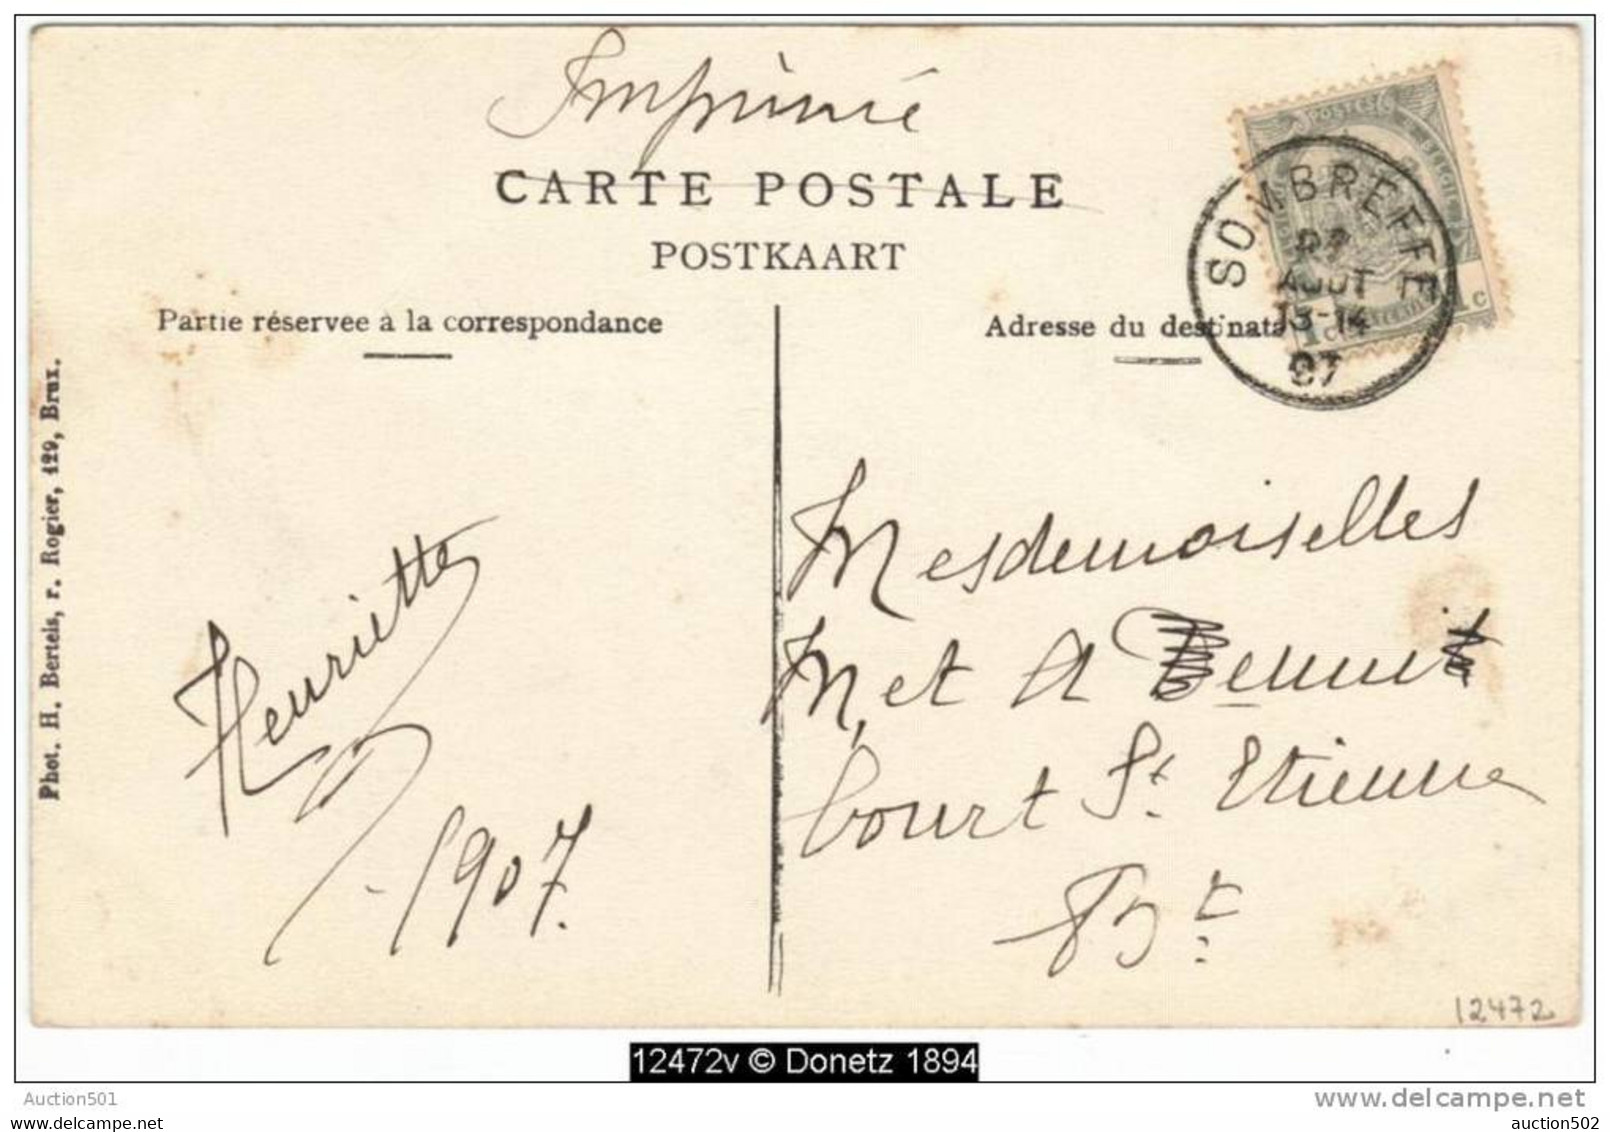 Imprimé
CARTE POSTALE
POSTKAART
Partie réservee à la correspondance
Adresse du destinata
SOMBREFFE
AOUT
13-14
07
POSTES
1c
1c
Phot. H. Bertels, r. Rogier, 129, Brux.
Henriette
1907.
Mesdemoiselles
M. et A
Court St. Etienne
Bt
12472
12472v © Donetz 1894
Auction501
www.delcampe.net
auction502